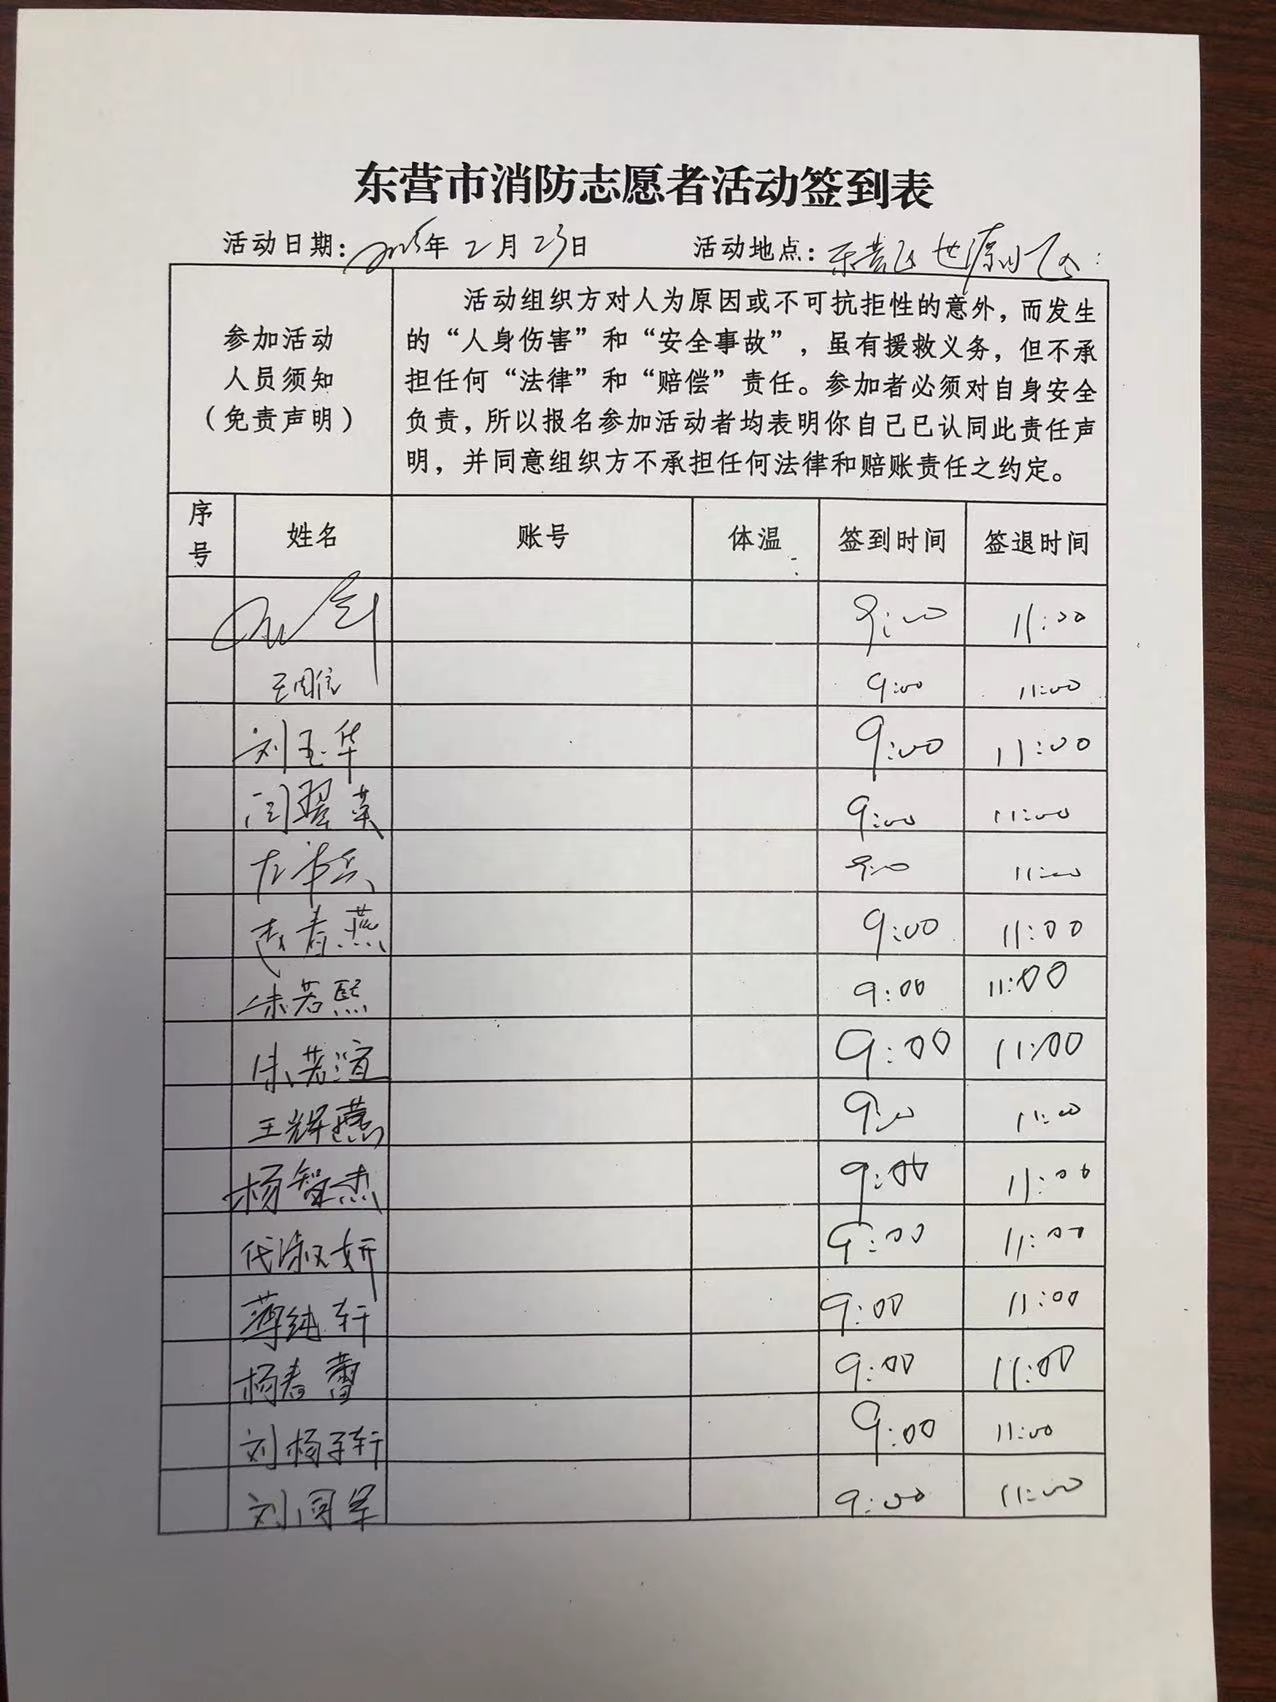 东营市消防志愿者活动签到表
活动日期：2025年2月23日 活动地点：东营区
参加活动
人员须知
（免责声明）
活动组织方对人为原因或不可抗拒性的意外，而发生
的“人身伤害”和“安全事故”，虽有援救义务，但不承
担任何“法律”和“赔偿”责任。参加者必须对自身安全
负责，所以报名参加活动者均表明你自己已认同此责任声
明，并同意组织方不承担任何法律和赔账责任之约定。
序号 姓名 账号 体温 签到时间 签退时间
9:00 11:00
9:00 11:00
刘玉华 9:00 11:00
闫翠英 9:00 11:00
9:00 11:00
春燕 9:00 11:00
朱若熙 9:00 11:00
朱若渲 9:00 11:00
王辉燕 9:00 11:00
杨智杰 9:00 11:00
代淑妍 9:00 11:00
薄纯轩 9:00 11:00
杨春蕾 9:00 11:00
刘杨子轩 9:00 11:00
刘同军 9:00 11:00